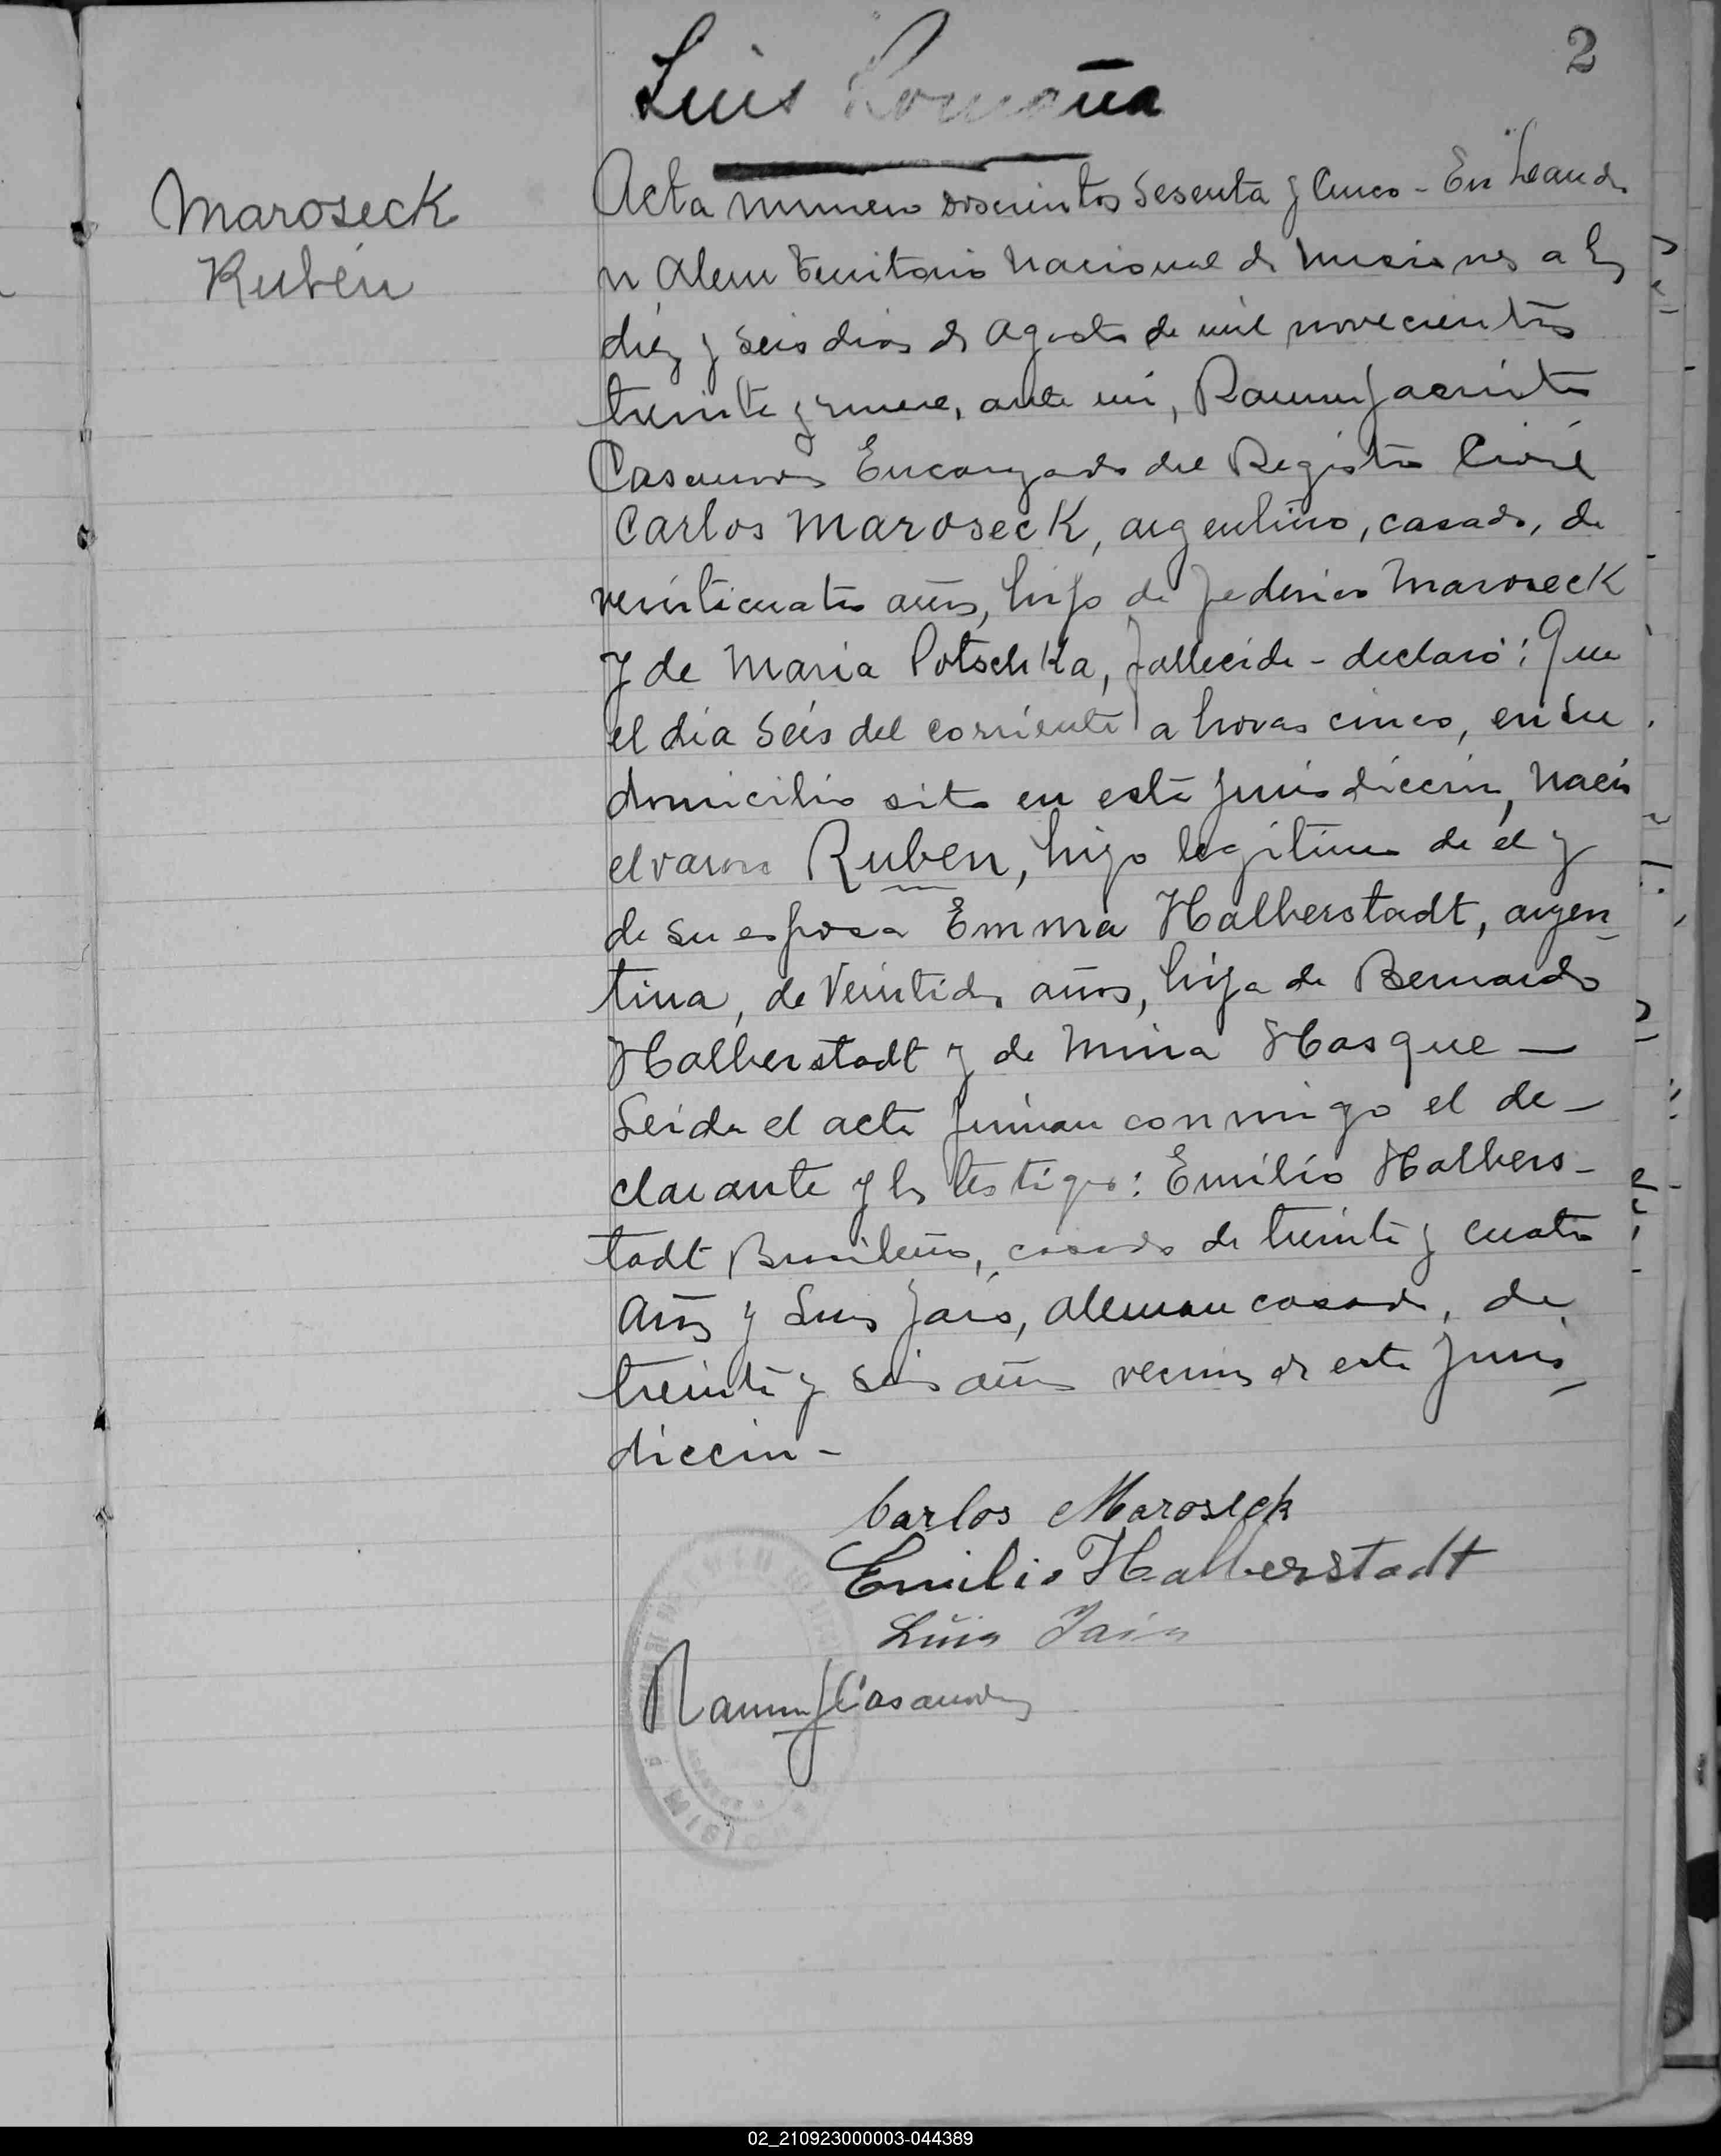 2
Luis Romaña
Maroseck
Rubén
Acta numero doscientos sesenta y cinco - En Leandro
N Alem Territorio Nacional de Misiones a los
diez y seis dias de Agosto de mil novecientos
treinta y nueve, ante mi, Ramon Jacinto
Casanova Encargado del Registro Civil
Carlos Maroseck, argentino, casado, de
veinticuatro años, hijo de Federico Maroseck
y de Maria Potschka, fallecida - declaró: Que
el dia seis del corriente a horas cinco, en su
domicilio sito en esta jurisdiccion, nació
el varon Ruben, hijo legitimo de él y
de su esposa Emma Halberstadt, argen
tina, de veintidos años, hija de Bernardo
Halberstadt y de Mina Hasque —
Leida el acta firman conmigo el de-
clarante y los testigos: Emilio Halbers-
tadt Brasileño, casado de treinta y cuatro
años y Luis Jais, aleman casado, de
treinta y seis años vecinos de esta juris
diccion -
Carlos Maroseck
Emilio Halberstadt
Luis Jais
Ramon J Casanova
02_210923000003-044389